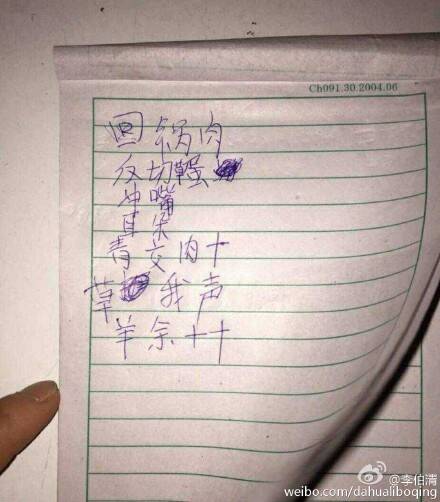 Ch091.30.2004.06
回锅肉
反切
冲嘴
耳朱
青交肉十
草我声
羊余十十
@李伯清
weibo.com/dahualiboqing